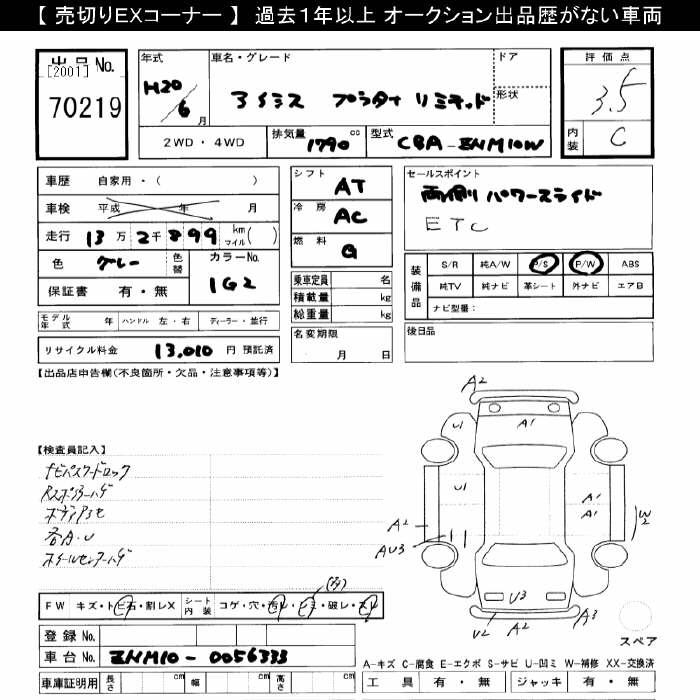 【 売切りEXコーナー 】 過去1年以上 オークション出品歴がない車両
出品 No.
[2001]
70219
年式
H20/6 月
車名・グレード
アイシス プラタナ リミテッド
ドア
形状
2WD・4WD
排気量 1790 cc
型式 CBA-ZNM10W
評価点
3.5
内装 C
車歴 自家用・( )
車検 平成 年 月
走行 13万2千899 km マイル( )
色 グレー 色替 カラーNo. 1G2
保証書 有・無
シフト AT
冷房 AC
燃料 G
乗車定員 名
積載量 kg
総重量 kg
名変期限 月 日
セールスポイント
両側パワースライド
ETC
装備品
S/R 純A/W P/S P/W ABS
純TV 純ナビ 革シート 外ナビ エアB
ナビ型番:
後日品
モデル年式 年 ハンドル 左・右 ディーラー・並行
リサイクル料金 13,010 円 預託済
【出品店申告欄(不良箇所・欠品・注意事項等)】
【検査員記入】
ナビパスワードロック
ボディヨセ
各A・U
ホイールセンターハゲ
A2
U1
A1
U1
A1
A1
W2
A2
AU3
U3
U2
A2
A3
スペア
FW キズ・トビ石・割レX
シート内装 コゲ・穴・汚レ・シミ・破レ・スレ
登録 No.
車台 No. ZNM10-0056333
車庫証明用 長さ cm 幅 cm 高さ cm
A-キズ C-腐食 E-エクボ S-サビ U-凹ミ W-補修 XX-交換済
工具 有・無 ジャッキ 有・無